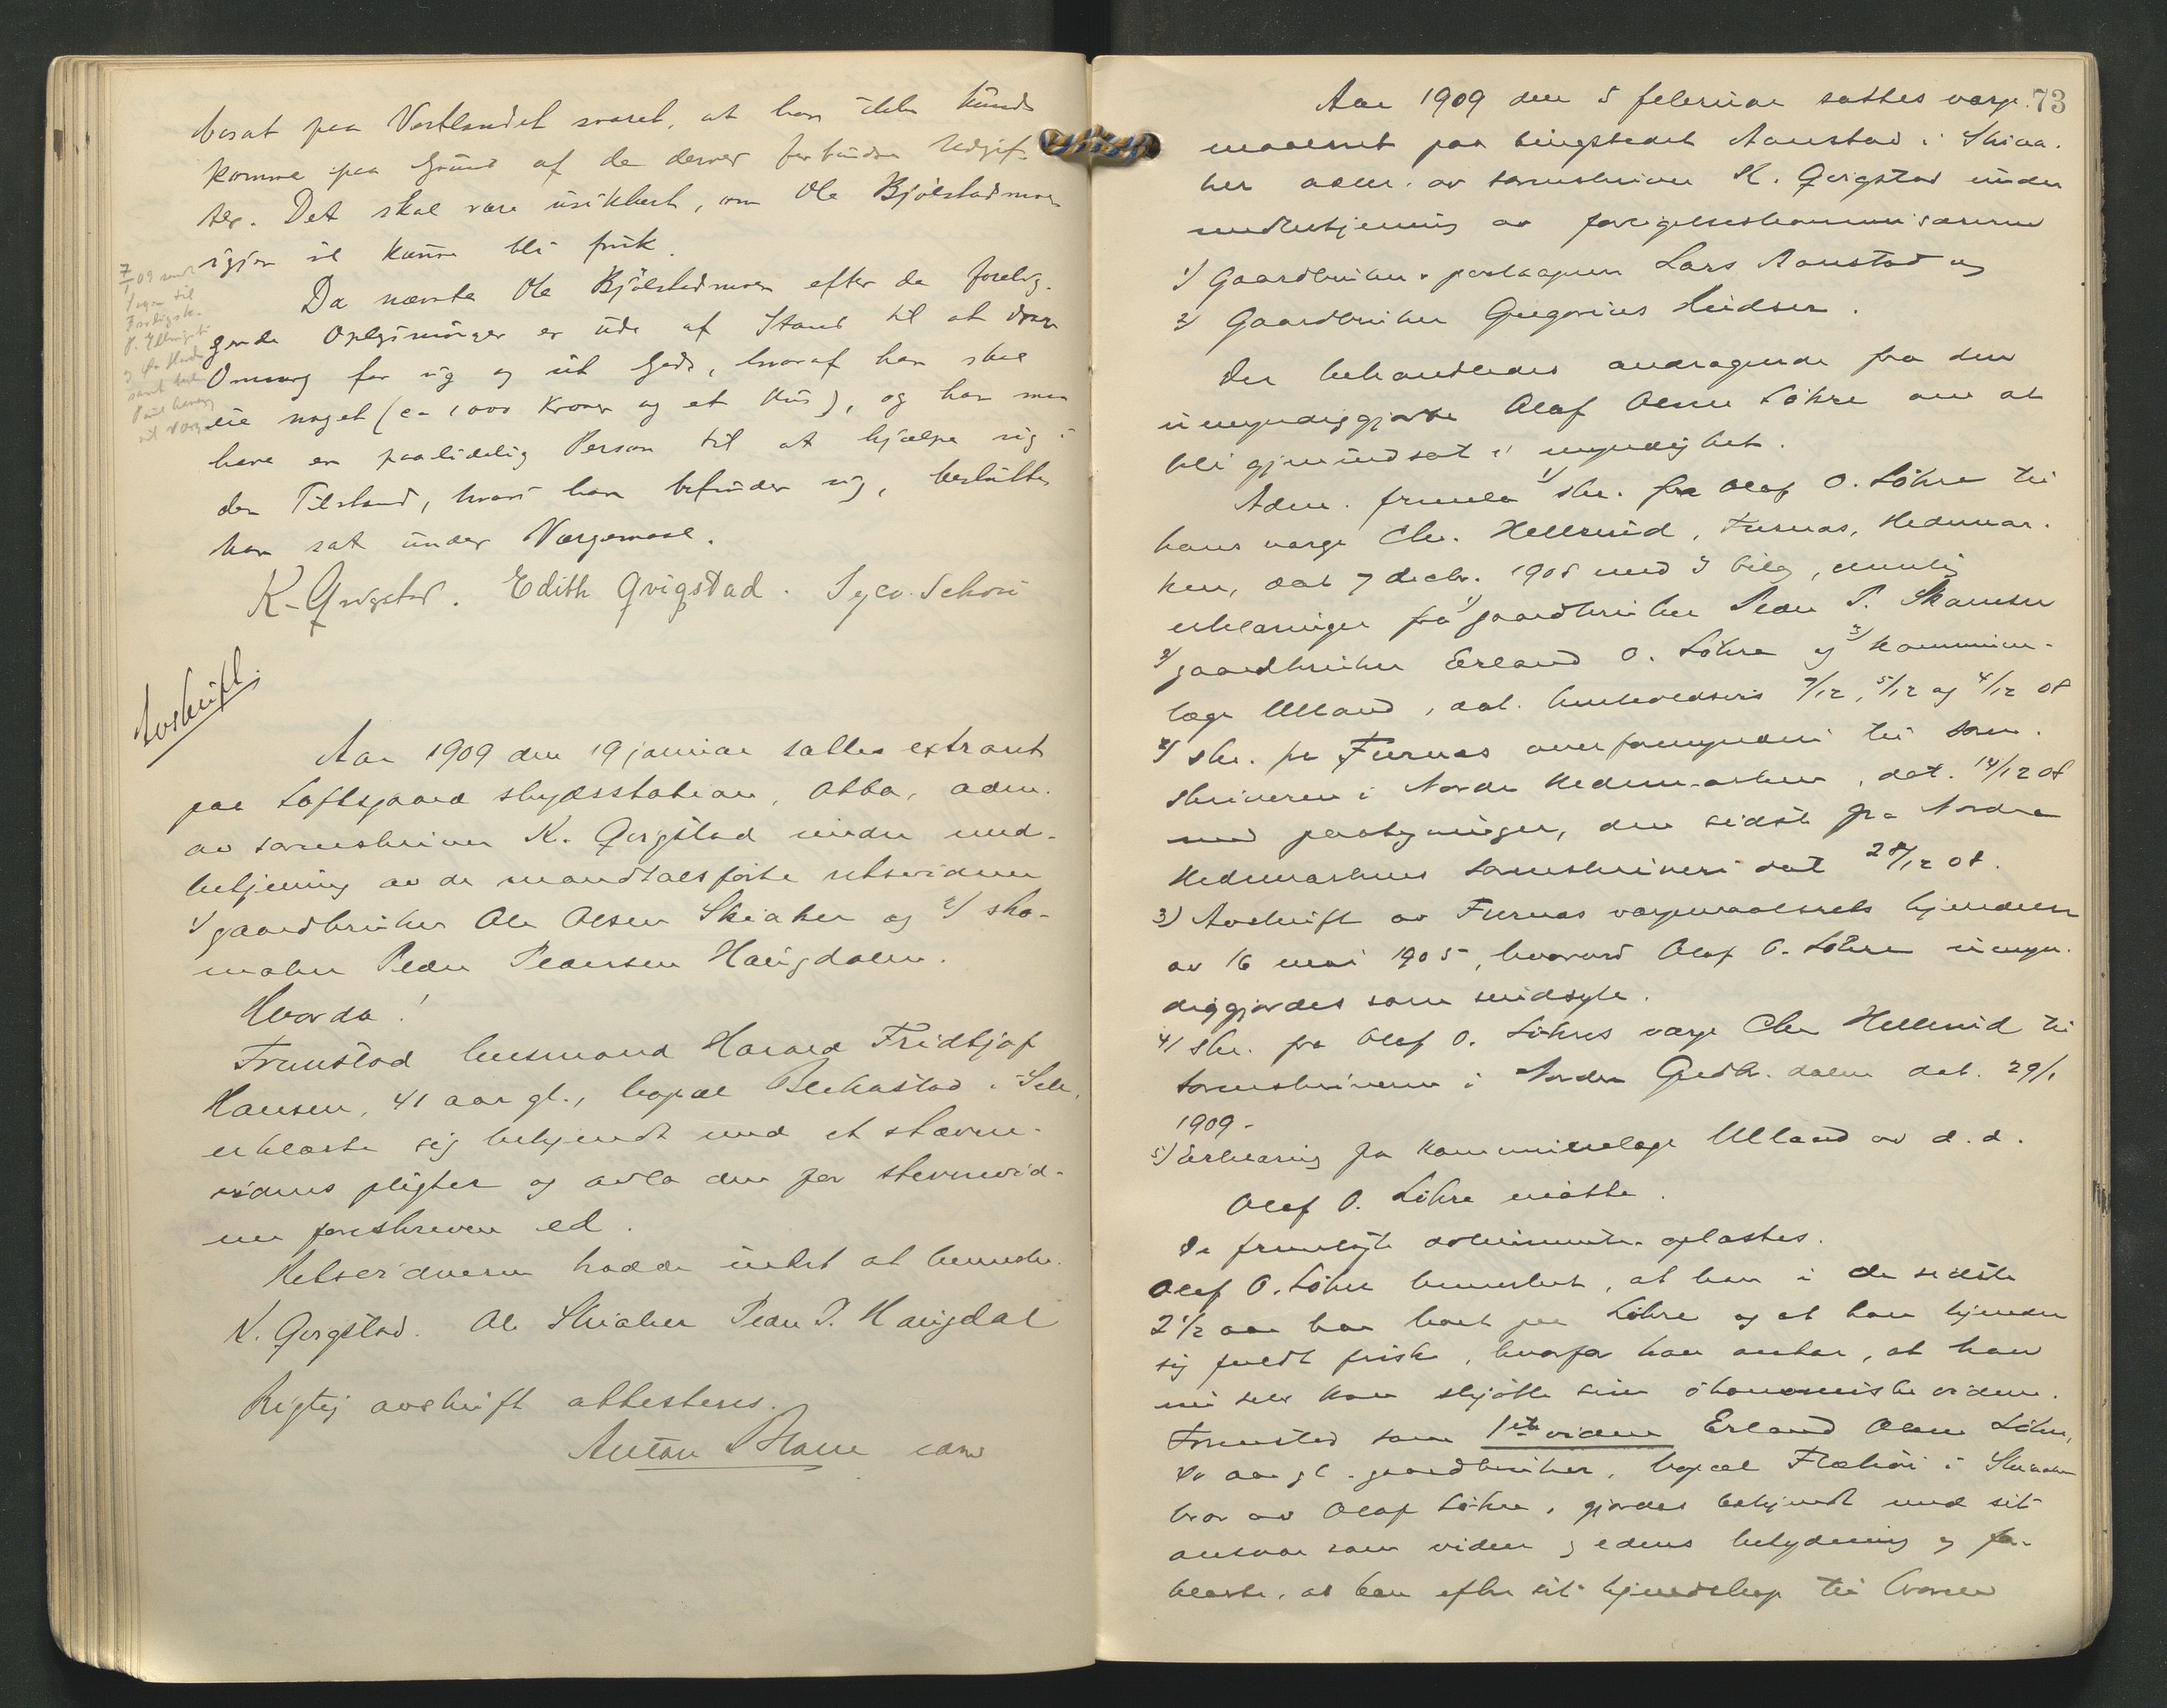 bosat paa Vestlandet svaret, at han ikke kunde
komme paa Grund af de derver forbundne Udgif-
ter. Det skal være usikkert, om Ole Bjölstadmoen
igjen vil kunne bli frisk.
Da nævnte Ole Bjölstadmoen efter de forelig-
gende Oplysninger er ude af Stand til at drage
Omsorg for sig og sit Gods, hvoraf han skal
eie noget (ca 1000 Kroner og et Hus), og han maa
have en paalidelig Person til at hjælpe sig i
den Tilstand, hvori han befinder sig, besluttes
han sat under Værgemaal.
K. Qvigstad. Edith Qvigstad. Syev. Schou
7/1 09 sendt
til
Avskrift.
Aar 1909 den 19 januar sattes extraret
paa Loftsgaard skydsstation, Otta, adm.
av sorenskriver K. Qvigstad under med-
betjening av de mandtalsförte retsvidner
1) gaardbruker Ole Olsen Skiaker og 2) sko-
maker Peder Pedersen Haugdalen.
Hvorda!
Fremstod husmand Harald Fridtjof
Hansen, 41 aar gl., bopæl Blekastad i Sel,
erklærte sig bekjendt med et stævne-
vidnes pligter og avla den for stevnevid-
ner foreskreven ed.
Retsvidnerne hadde intet at bemerke.
K. Qvigstad. Ole Skiaker Peder P. Haugdal
Rigtig avskrift attesteres.
Anton
73
Aar 1909 den 5 februar sattes verge-
maalsret paa tingstedet Aanstad i Skiaa-
ker adm. av sorenskriver K. Qvigstad under
medbetjening av forligelseskommissærerne
1) Gaardbruker, postaapner Lars Aanstad og
2) Gaardbruker Gregorius Heidser.
Der behandledes andragende fra den
umyndiggjorte Olaf Olsen Löhre om at
bli gjenindsat i myndighet.
Adm. fremla 1) skr. fra Olaf O. Löhre til
hans verge Chr. Hellerud, Furnes, Hedemar-
ken, dat 7 decbr. 1908 med 3 bilag, nemlig
erklæringer fra 1) gaardbruker Peder P. Skamsar
2) gaardbruker Erland O. Löhre og 3) kommune-
læge Ulland, dat. henholdsvis 7/12, 5/12 og 4/12 08
2) skr. fra Furnes overformynderi til soren-
skriveren i Nordre Hedemarken, dat. 14/12 08
med paategninger, den sidste fra Nordre
Hedemarkens sorenskriveri dat 28/12 08.
3) Avskrift av Furnes vergemaalsrets kjendelse
av 16 mai 1905, hvorved Olaf O. Löhre umyn-
diggjordes som sindsyk.
4) Skr. fra Olaf O. Löhres verge Chr Hellerud til
sorenskriveren i Nordre Gudbr. dalen dat. 29/1
1909 -
5) Erklæring fra kommunelæge Ulland av d.d.
Olaf O. Löhre mötte.
De fremlagte dokumenter oplæstes.
Olaf O. Löhre bemerket, at han i de sidste
2 1/2 aar har boet paa Löhre og at han kjender
sig fuldt frisk, hvorfor han antar, at han
nu selv kan skjötte sine ökonomiske
Fremstod som 1ste vidne Erland Olsen Löhre,
aar gl. gaardbruker, bopæl i Skiaaker
bror av Olaf Löhre, gjordes bekjendt med sit
ansvar som vidne og edens betydning og for-
klarte, at han efter sit kjendskap til broren